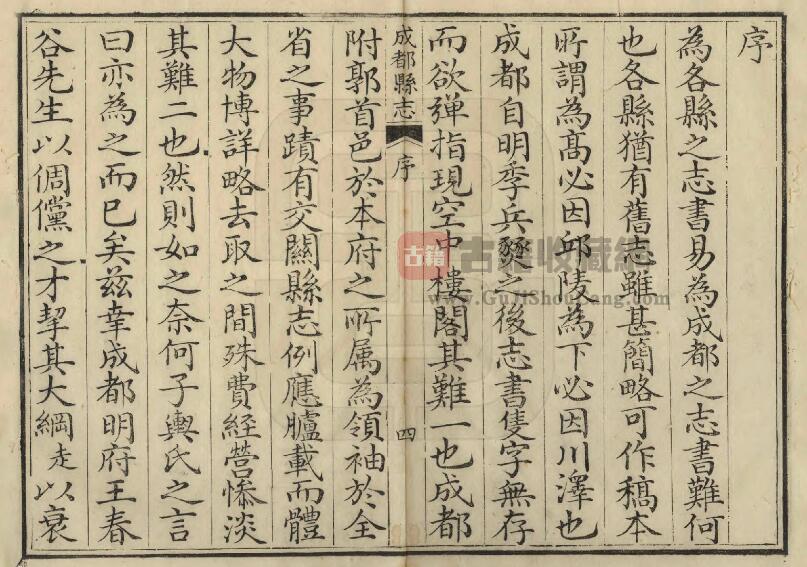 序
為各縣之志書易為成都之志書難何
也各縣猶有舊志雖甚簡略可作稿本
所謂為髙必因邱陵為下必因川澤也
成都自明季兵燹之後志書隻字無存
而欲彈指現空中樓閣其難一也成都
成都縣志
序
四
附郭首邑於本府之所属為領袖於全
省之事蹟有交關縣志例應臚載而體
大物博詳略去取之間殊費經營慘淡
其難二也然則如之奈何子輿氏之言
曰亦為之而已矣兹幸成都明府王春
谷先生以倜儻之才挈其大綱走以衰
古籍
古籍收藏
www.GuJiShouCang.com